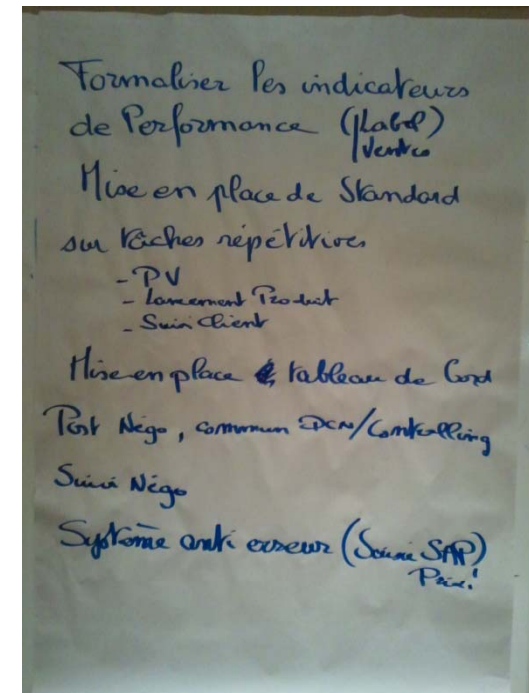 Formaliser les indicateurs
de Performance (Label)
Ventes
Mise en place de Standard
sur tâches répétitives
- PV
- Lancement Produit
- Suivi Client
Mise en place tableau de bord
Post Négo, commun DCN/Controlling
Suivi Négo
Système anti erreur (Saisie SAP)
Prix!